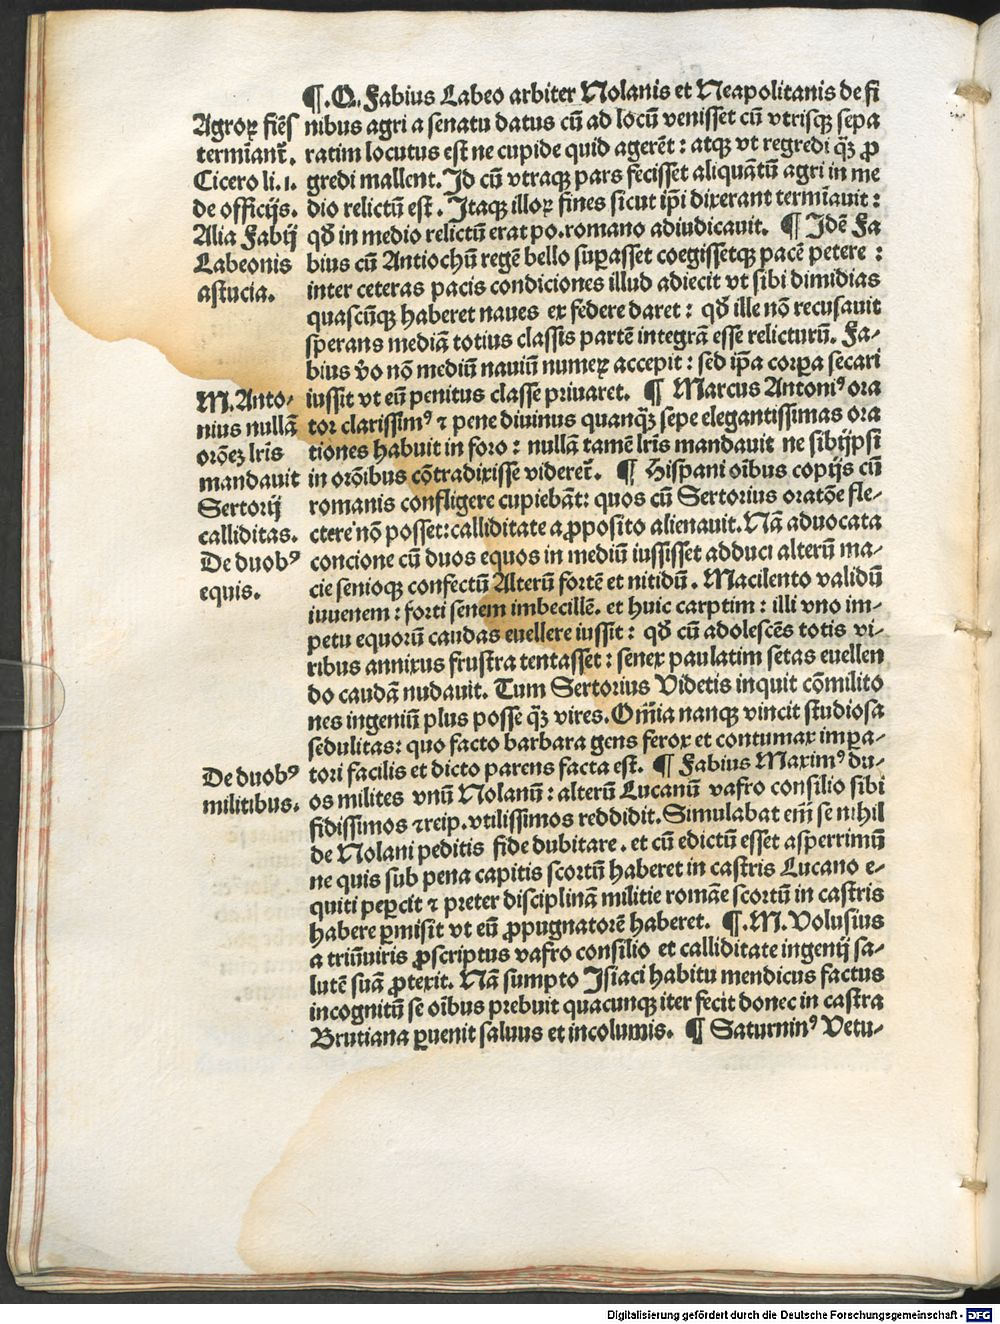 ¶.Q. Fabius Labeo arbiter Nolanis et Neapolitanis de fi
nibus agri a senatu datus cū ad locū venisset cū vtrisqꝫ sepa
ratim locutus est ne cupide quid agerēt: atqꝫ vt regredi q̄ꝫ ꝓ
gredi mallent. Id cū vtraqꝫ pars fecisset aliquātū agri in me
dio relictū est. Itaqꝫ illoꝝ fines sicut ip̄i dixerant termīauit:
qđ in medio relictū erat po.romano adiudicauit. ¶ Idē Fa
bius cū Antiochū regē bello suꝑasset coegissetqꝫ pacē petere:
inter ceteras pacis condiciones illud adiecit vt sibi dimidias
quascūqꝫ haberet naues ex federe daret: qđ ille nō recusauit
sperans mediā totius classis partē integrā esse relicturū. Fa-
bius v̄o nō mediū nauiū numeꝝ accepit: sed ip̄a corꝑa secari
iussit vt eū penitus classe priuaret. ¶ Marcus Antoniꝰ ora
tor clarissimꝰ ⁊ pene diuinus quanq̄ꝫ sepe elegantissimas ora
tiones habuit in foro: nullā tamē lr̄is mandauit ne sibijpsi
in orōibus cōtradixisse videret̄. ¶ Hispani oībus copijs cū
romanis confligere cupiebāt: quos cū Sertorius oratōe fle-
ctere nō posset: calliditate a ꝓposito alienauit. Nā aduocata
concione cū duos equos in mediū iussisset adduci alterū ma-
cie senioqꝫ confectū Alterū fortē et nitidū. Macilento validū
iuuenem: forti senem imbecillē. et huic carptim: illi vno im-
petu equorū caudas euellere iussit: qđ cū adolescēs totis vi-
ribus annixus frustra tentasset: senex paulatim setas euellen
do caudā nudauit. Tum Sertorius Videtis inquit cōmilito
nes ingeniū plus posse q̄ꝫ vires. Om̄ia nanqꝫ vincit studiosa
sedulitas: quo facto barbara gens ferox et contumax imꝑa-
tori facilis et dicto parens facta est. ¶ Fabius Maximꝰ du-
os milites vnū Nolanū: alterū Lucanū vafro consilio sibi
fidissimos ⁊ reip. vtilissimos reddidit. Simulabat em̄ se nihil
de Nolani peditis fide dubitare. et cū edictū esset asperrimū
ne quis sub pena capitis scortū haberet in castris Lucano e-
quiti peꝑcit ⁊ preter disciplinā militie romāe scortū in castris
habere ꝑmisit vt eū ꝓpugnatorē haberet. ¶.M. Volusius
a triūuiris ꝓscriptus vafro consilio et calliditate ingenij sa-
lutē suā ꝓtexit. Nā sumpto Isiaci habitu mendicus factus
incognitū se oībus prebuit quacunqꝫ iter fecit donec in castra
Brutiana ꝑuenit saluus et incolumis. ¶ Saturninꝰ Vetu-
Agroꝝ fiēs
termīant̄.
Cicero li.i.
de officijs.
Alia Fabij
Labeonis
astucia.
M. Anto-
nius nullā
orōeꝫ lr̄is
mandauit
Sertorij
calliditas.
De duobꝰ
equis.
De duobꝰ
militibus.
Digitalisierung gefördert durch die Deutsche Forschungsgemeinschaft - DFG